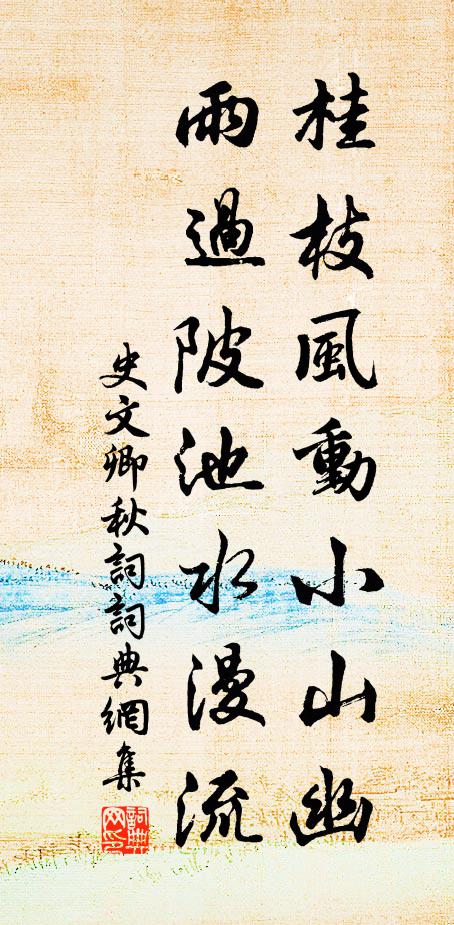 桂枝風動小山幽
雨過陂池水漫流
史文卿秋詞詞典網集
詞典網印